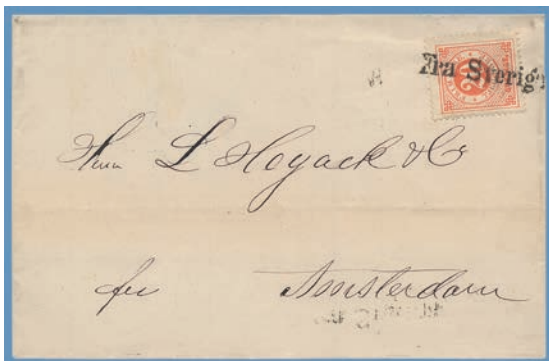 Fra Sverige
20
Herrn L Hoyack & Co
per
Amsterdam